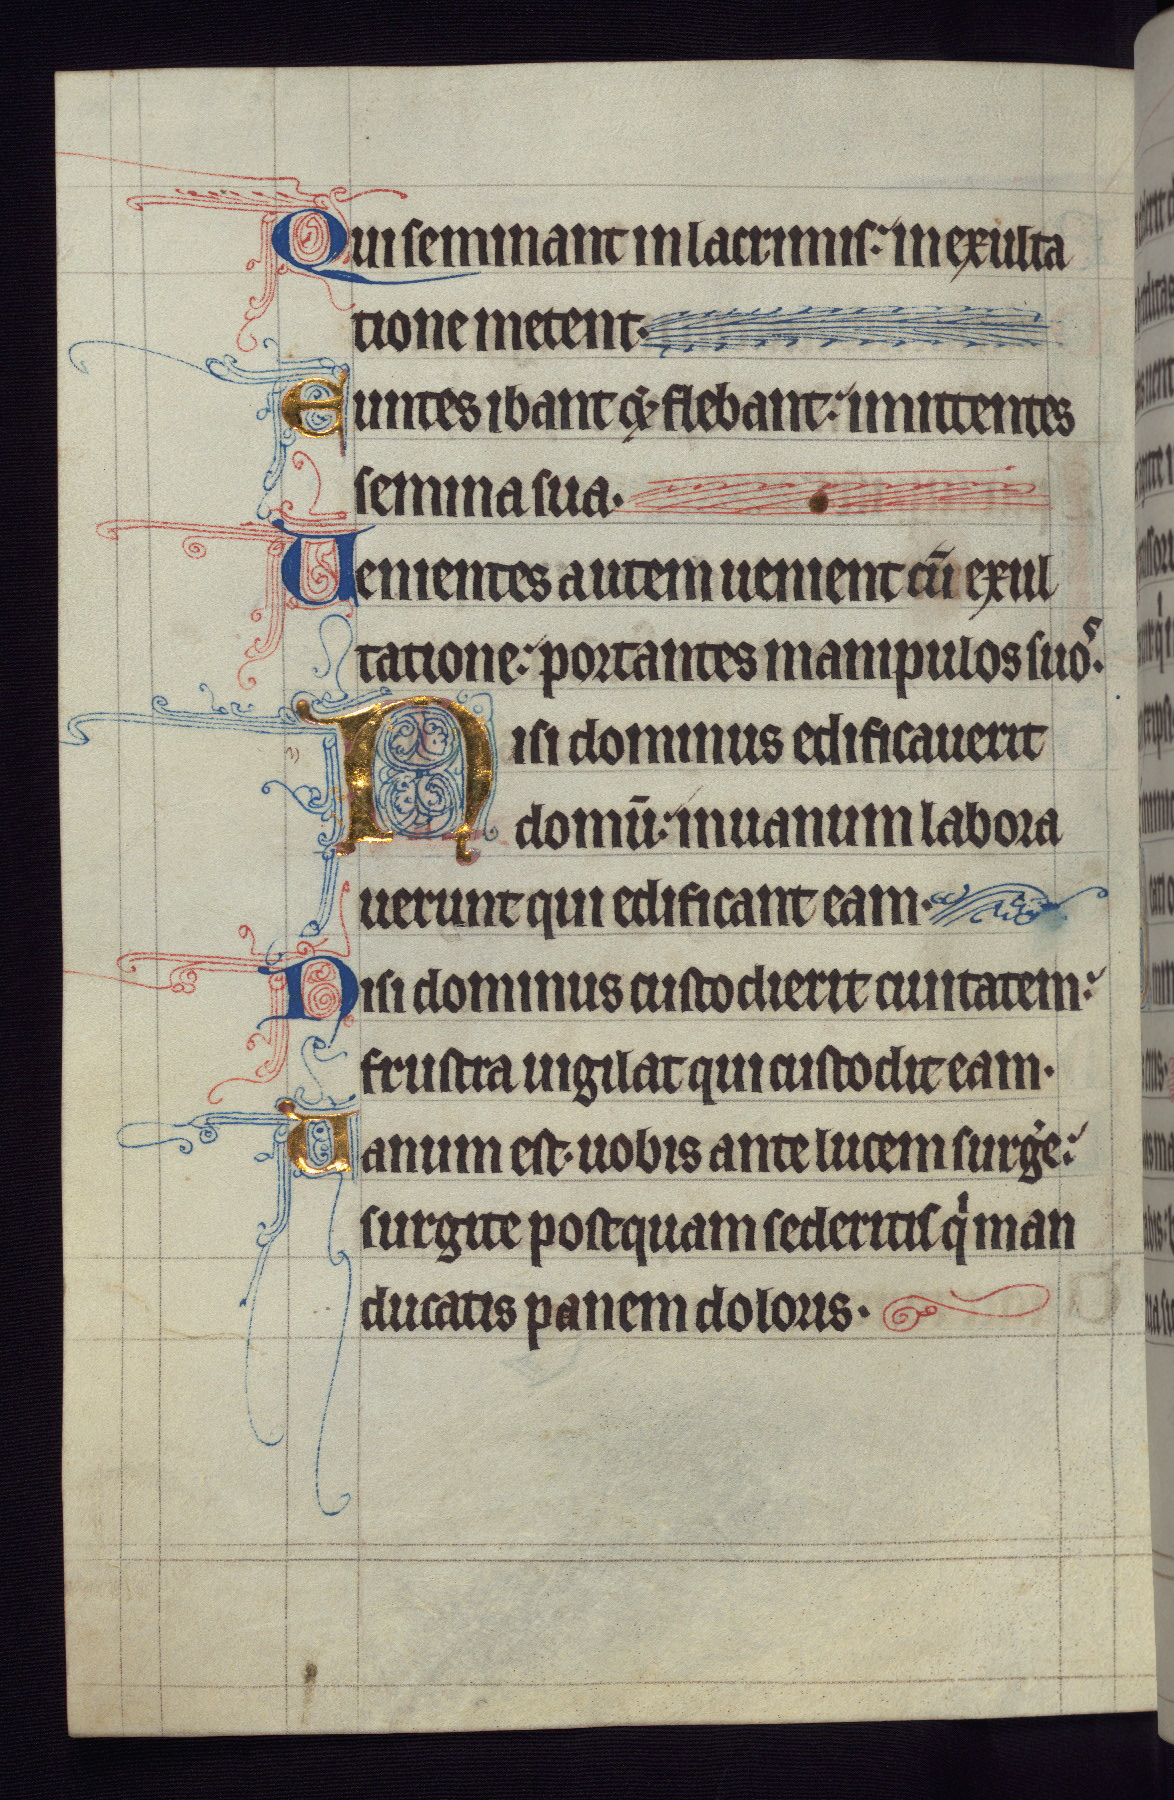 Qui seminant in lacrimis: in exulta
tione metent.
Euntes ibant & flebant: mittentes
semina sua.
Uenientes autem uenient cū exul
tatione: portantes manipulos suos.
Nisi dominus edificauerit
domū: in uanum labora
uerunt qui edificant eam.
Nisi dominus custodierit ciuitatem:
frustra uigilat qui custodit eam.
Uanum est uobis ante lucem surge᷒:
surgite postquam sederitis qͥ man
ducatis panem doloris.